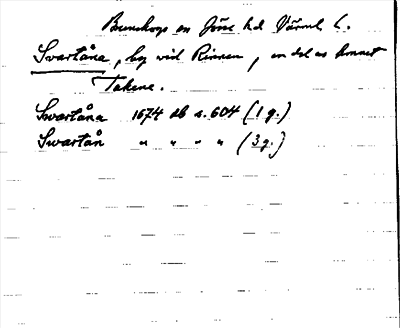 Brunskogs sn Jösse hd Värml. l.
Svartåna, beg vid Rinnen, en del av ån mot
Takene.
Swartåna 1674 db s. 604 (1 g.)
Swartån " " " " (3 g.)